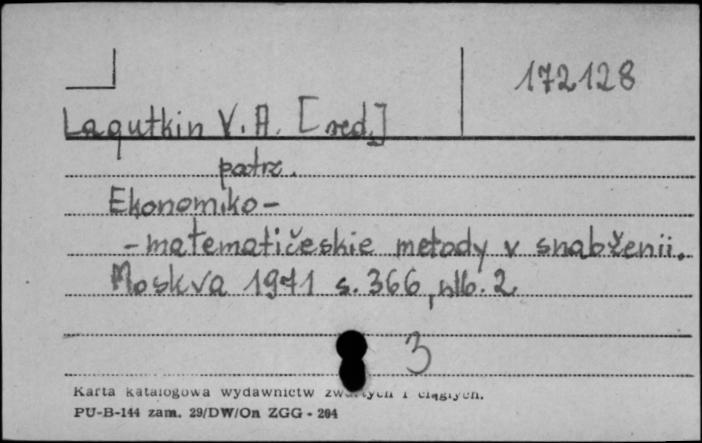 172128
Lagutkin V. A. [red.]
patrz.
Ekonomiko-
-matematičeskie metody v snabženii.
Moskva 1971 s. 366, nlb. 2
3
Karta katalogowa wydawnictw zwartych i ciągłych.
PU-B-144 zam. 29/DW/On ZGG - 204